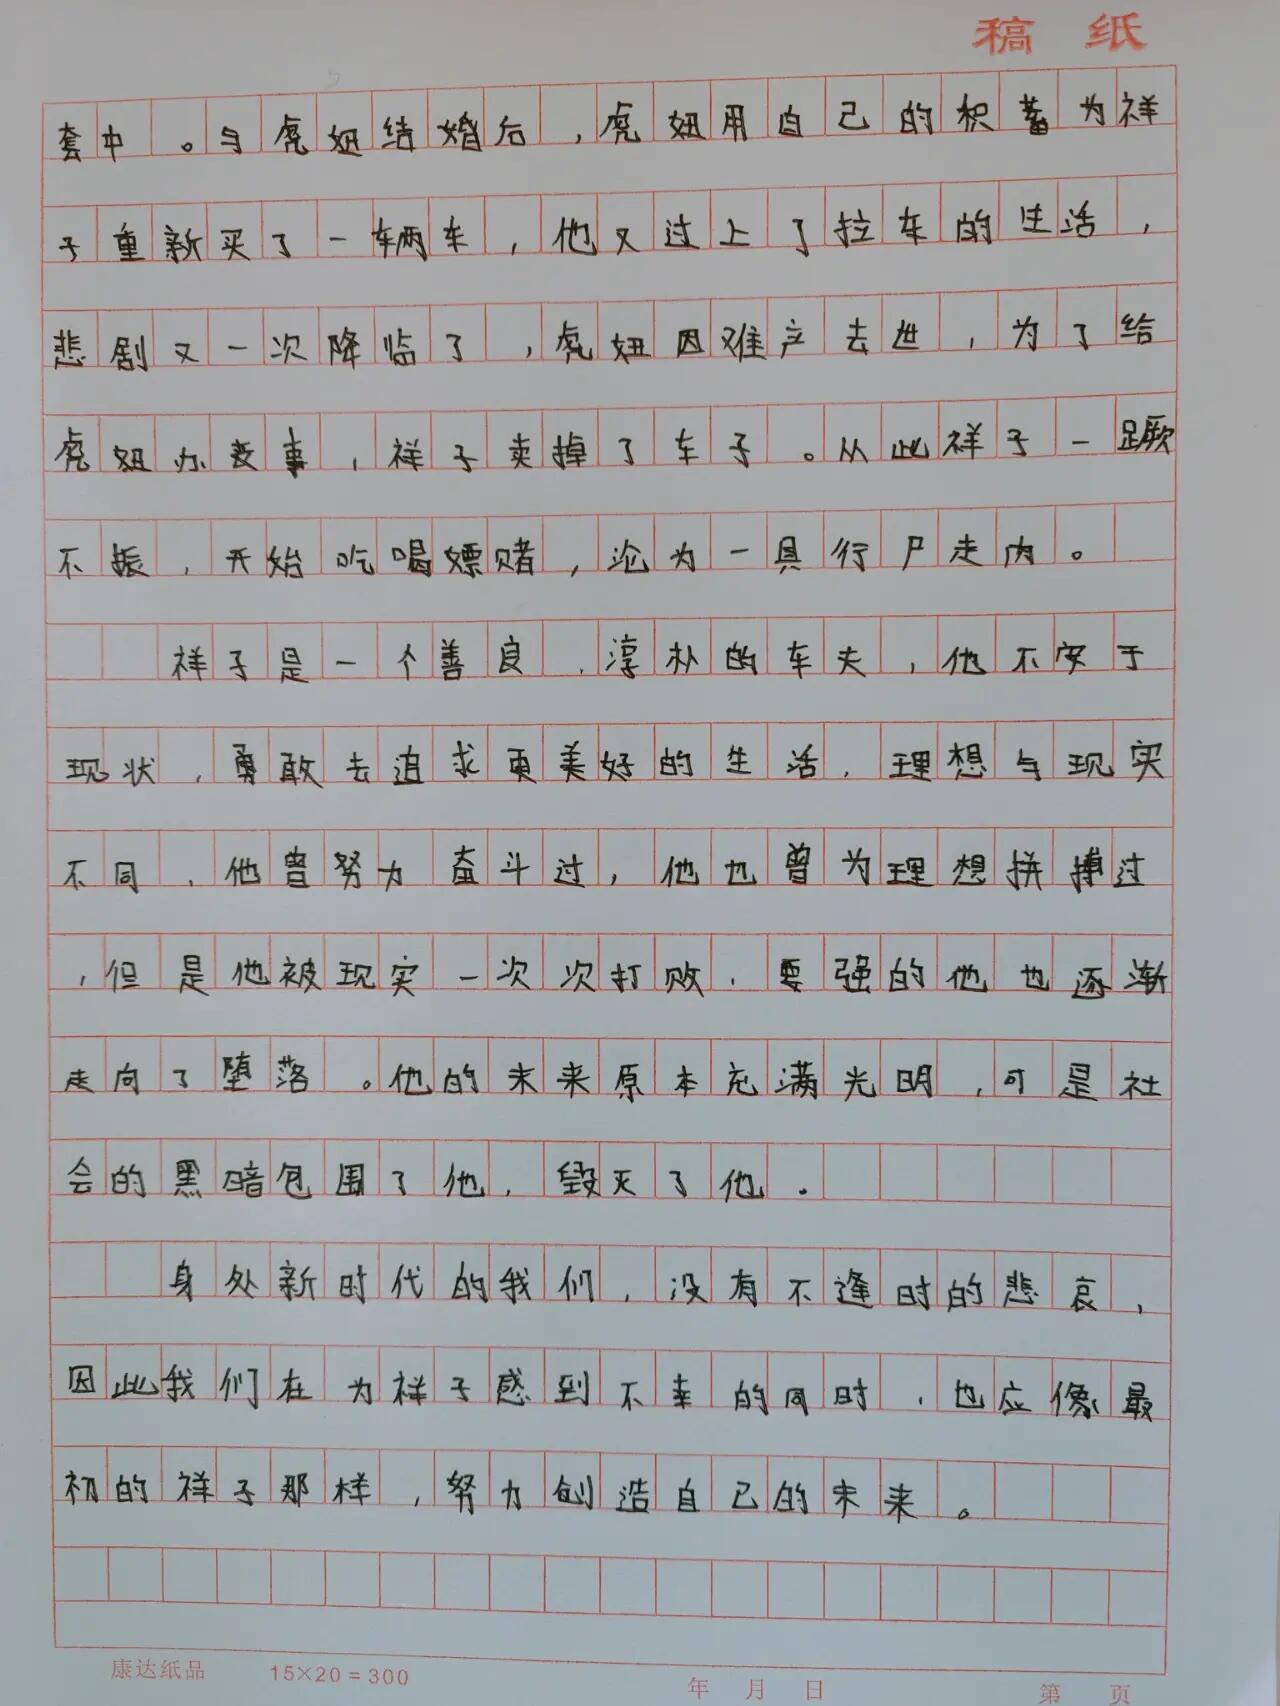 稿纸
套中。与虎妞结婚后,虎妞用自己的积蓄为祥
子重新买了一辆车,他又过上了拉车的生活,
悲剧又一次降临了,虎妞因难产去世,为了给
虎妞办丧事,祥子卖掉了车子。从此祥子一蹶
不振,开始吃喝嫖赌,沦为一具行尸走肉。
祥子是一个善良,淳朴的车夫,他不安于
现状,勇敢去追求更美好的生活,理想与现实
不同,他曾努力奋斗过,他也曾为理想拼搏过
,但是他被现实一次次打败,要强的他也逐渐
走向了堕落。他的未来原本充满光明,可是社
会的黑暗包围了他,毁灭了他。
身处新时代的我们,没有不逢时的悲哀,
因此我们在为祥子感到不幸的同时,也应像最
初的祥子那样,努力创造自己的未来。
康达纸品 15×20=300 年 月 日 第 页